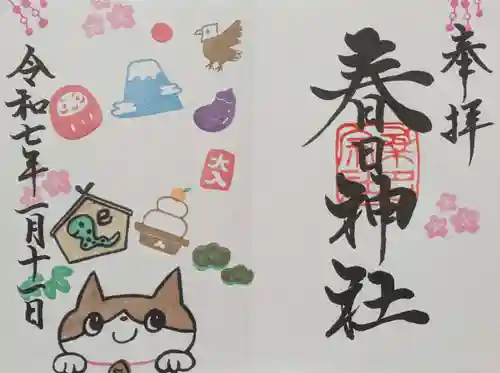 奉拝
春日神社
令和七年一月十一日